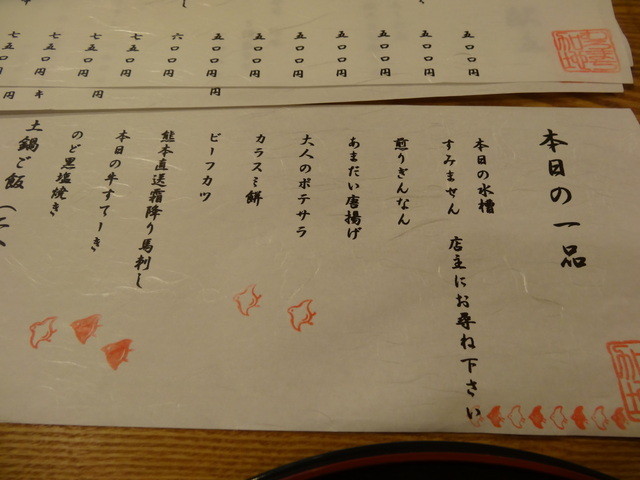 五〇〇円
五〇〇円
五〇〇円
五〇〇円
五〇〇円
五〇〇円
五〇〇円
六〇〇円
七五〇円
七五〇円
七五〇円
本日の一品
本日の水槽
すみません 店主にお尋ね下さい
煎りぎんなん
あまだい唐揚げ
大人のポテサラ
カラスミ餅
ビーフカツ
熊本直送霜降り馬刺し
本日の牛すてーき
のど黒塩焼き
土鍋ご飯